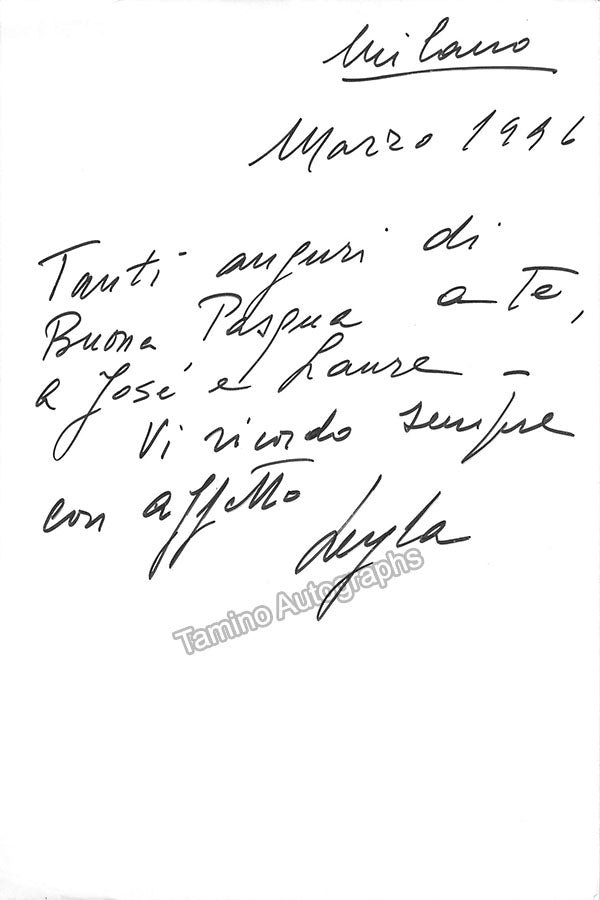 Milano
Marzo 1996
Tanti auguri di
Buona Pasqua a Te,
a José e Laure –
Vi ricordo sempre
con affetto
Leyla
Tamino Autographs